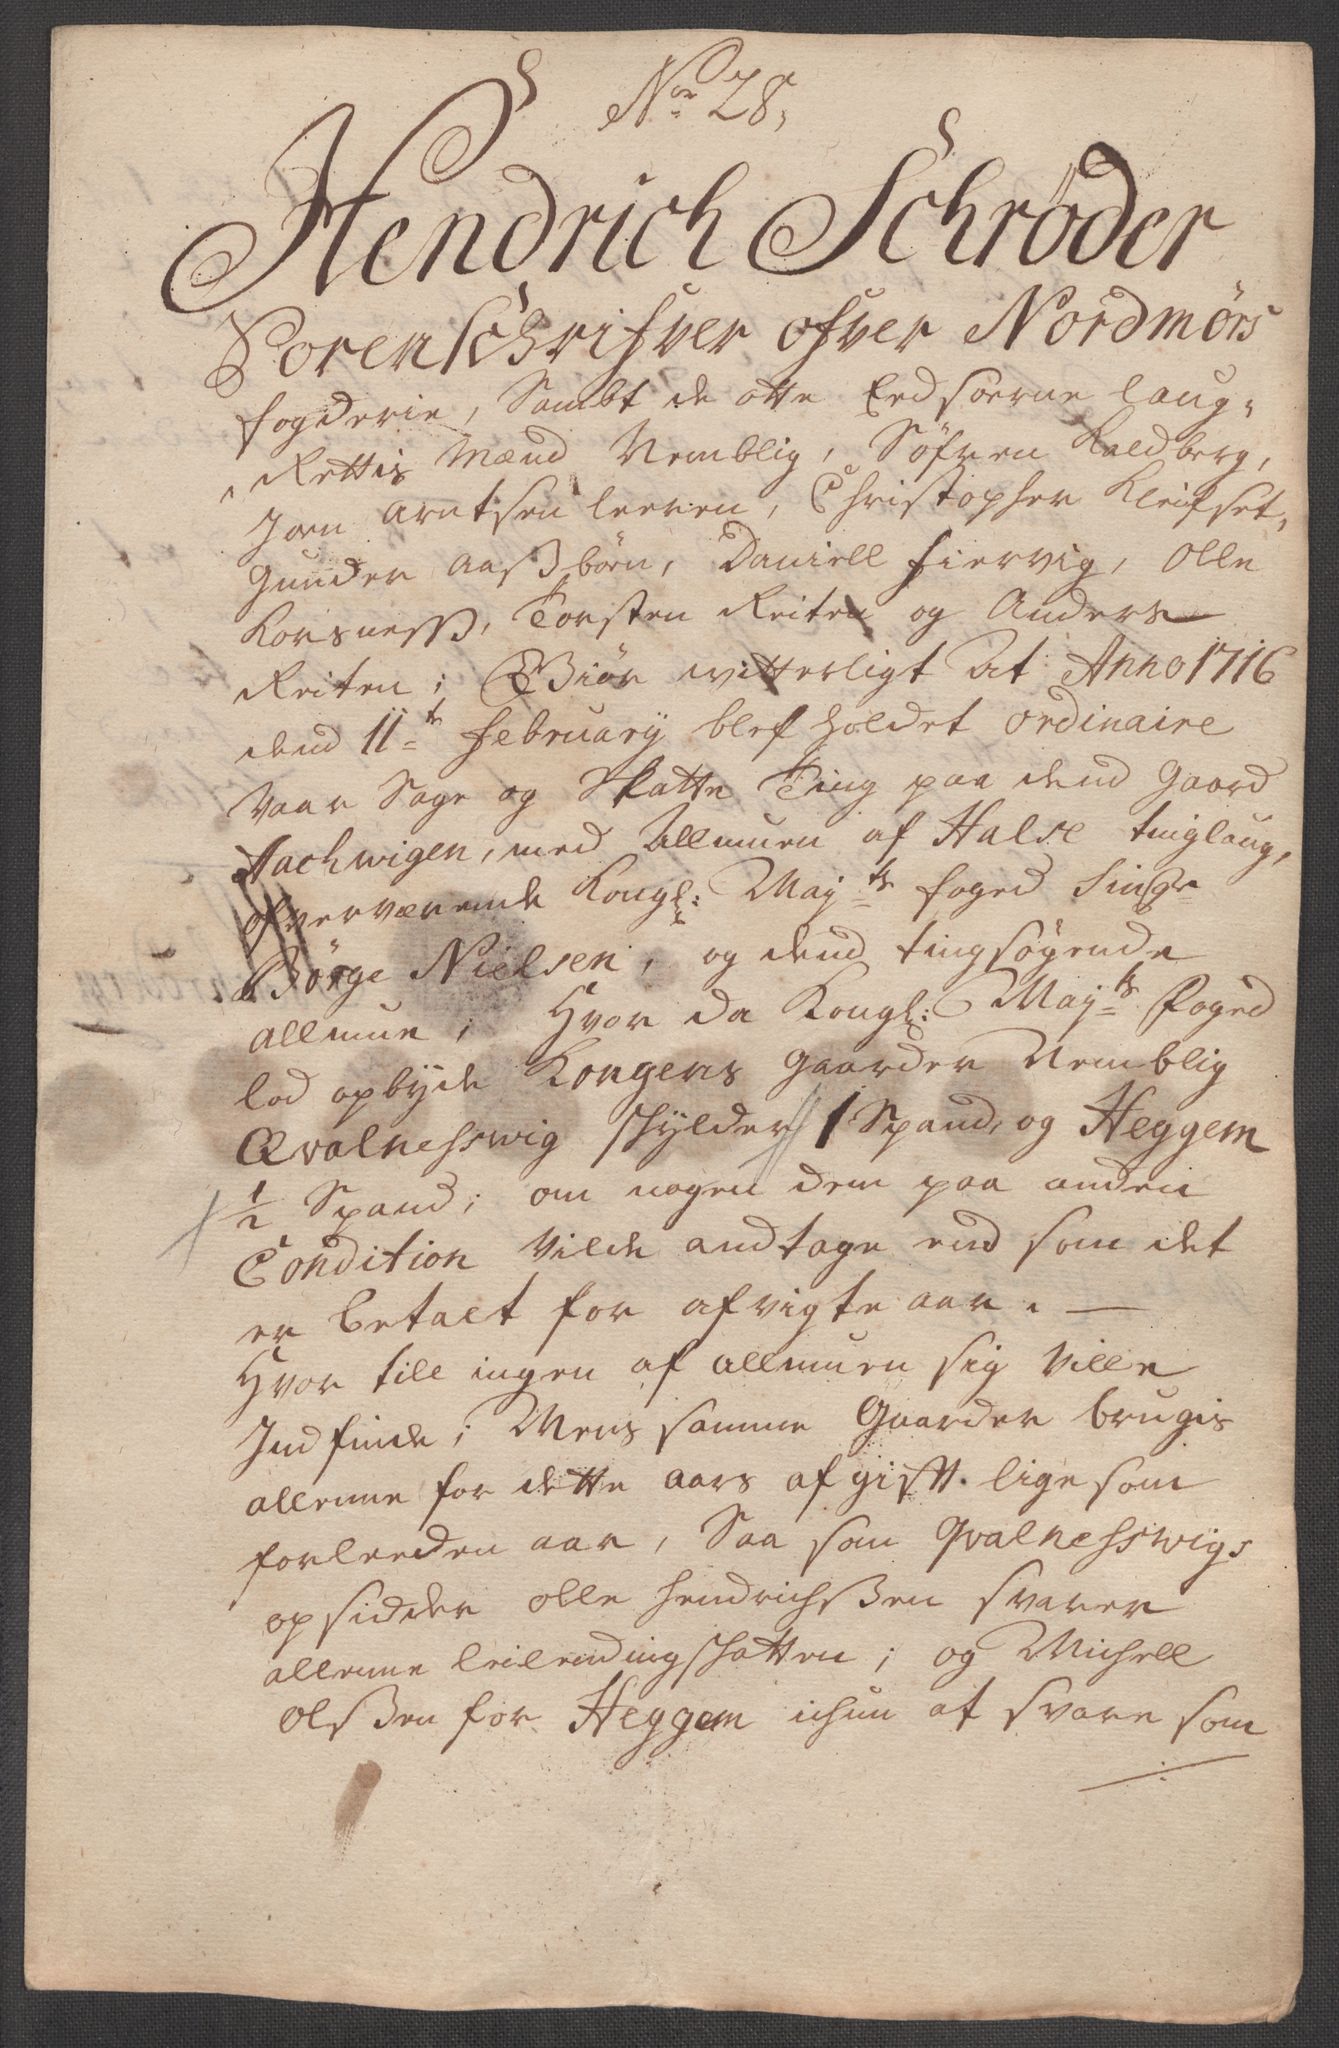 No 28,
Hendrich Schrøder
Sorenschrifver ofver Nordmørs
fogderie, Sambt de otte Eedsoerne laug-
Rettis Mænd Nemblig, Søfren Kaldberg,
Joen Arntsen leeren, Christopher Kleifset,
Gunder Aasbøen, Daniell fiervig, Olle
Korsness, Torsten Reiten og Anders
Reiten; Giør witterligt At Anno 1716
dend 11te February blef holdet ordinaire
Vaar Sage og Skatte Ting paa dend Gaard
Aachwigen, med Allmuen af Halse tinglaug,
ofverværende Kongl: Mayts foged Sinr
Børge Nielsen, og dend tingsøgende
allmue; Hvor da Kongl: Mayts Foged
lod opbyde Kongens gaarder Nemblig
Qvalneswig schylder 1 Spand, og Heggem
1/2 Spand; om nogen dem paa anden
Condition vilde andtage end som det
er betalt for afvigte aar. —
Hvor till ingen af allmuen sig ville
Indfinde; Mens samme Gaarder brugis
allenne for dette aars afgift lige som
forleeden aar, Saa som Qvalneswigs
opsidder olle hendrichsen svarer
allenne leilendingschatten; og Michell
olsen for Heggem ichun at svare som